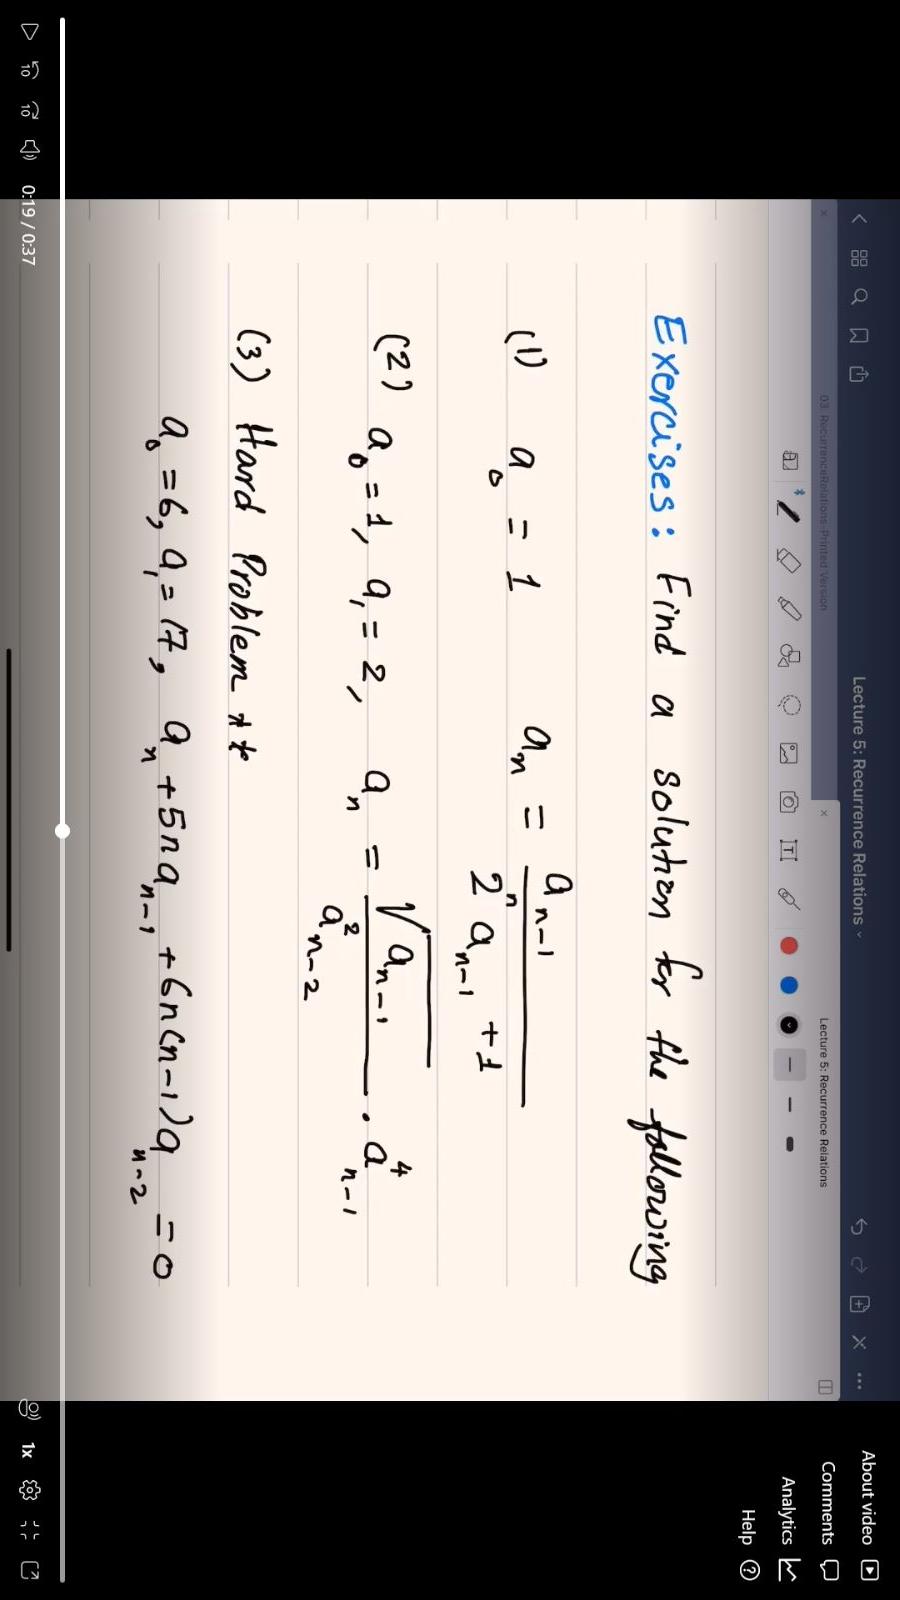 Lecture 5: Recurrence Relations
03. RecurrenceRelations-Printed Version
Lecture 5: Recurrence Relations
Exercises: Find a solution for the following
(1) a₀ = 1 aₙ = aₙ₋₁ / (2ⁿ aₙ₋₁ + 1)
(2) a₀ = 1, a₁ = 2, aₙ = √aₙ₋₁ / a²ₙ₋₂ · a⁴ₙ₋₁
(3) Hard Problem **
a₀ = 6, a₁ = 17, aₙ + 5naₙ₋₁ + 6n(n-1)aₙ₋₂ = 0
About video
Comments
Analytics
Help
10
10
0:19 / 0:37
1x